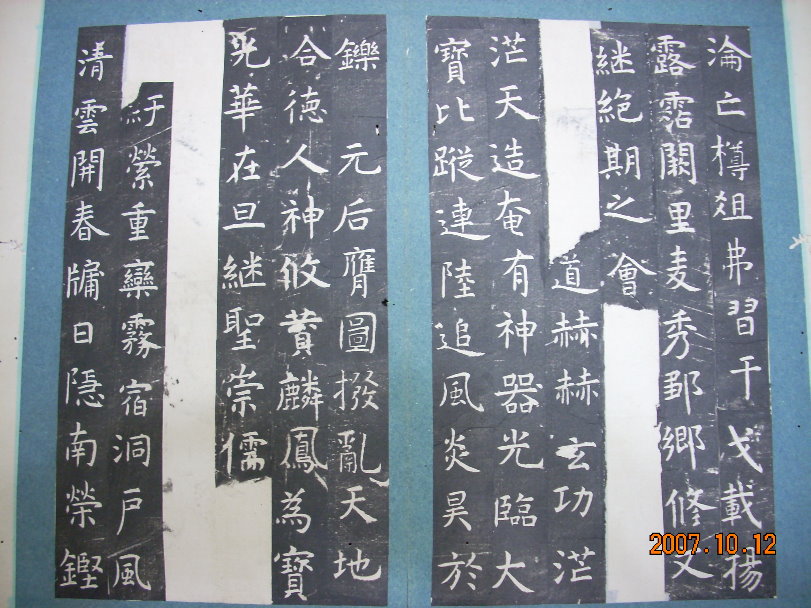 淪亡樽俎弗習干戈載揚
露霑闕里麦秀鄒鄉脩文
継絕期之會
道赫赫玄功茫
茫天造奄有神器光臨大
寶比蹤連陸追風炎昊於
鑠 元后膺圖撥亂天地
合德人神攸賛麟鳳為寶
光華在旦継聖崇儒
紆縈重欒霧宿洞戶風
清雲開春牖日隱南榮鏗
2007.10.12